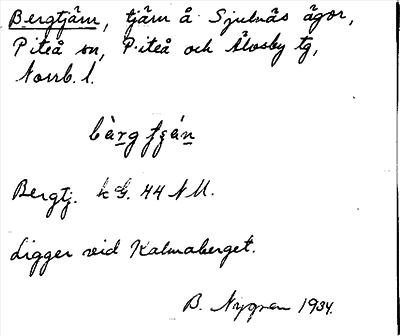 Bergtjärn, tjärn å Sjulnäs ägor,
Piteå sn, Piteå och Älvsby tg,
Norrb. l.
Bergtj. k G. 44 NU.
Ligger vid Kalmaberget.
B. Nygren 1934.